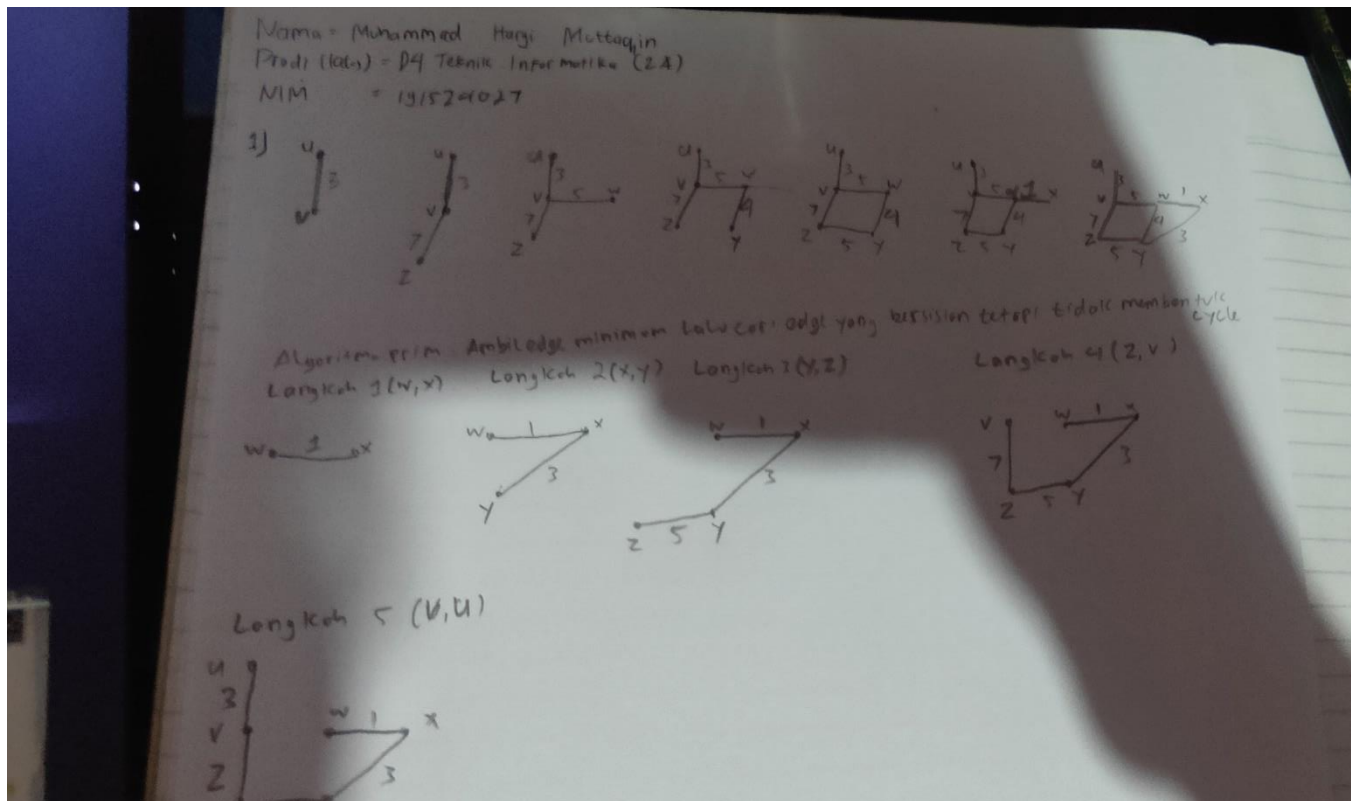 Nama = Muhammad Hargi Muttaqin
Prodi (kls) = D4 Teknik Informatika (2A)
NIM =
1)
u 3 v
u 3 v 7 z
u 3 v 5 7 z
u 3 v 5 7 z 4 y
u 3 v 5 w 7 4 z 5 y
u 3 5 1 x 7 4 z 5 y
u 3 v 5 w 1 x 7 4 3 z 5 y
Algoritma prim Ambil edge minimum Lalu cari edge yang bersisian tetapi tidak membentuk
cycle
Langkah 1 (w, x) Langkah 2 (x, y) Langkah 3 (Y, Z) Langkah 4 (Z, v)
w 1 x
w 1 x 3 y
w 1 x 3 z 5 y
v w 1 x 7 3 z 5 y
Langkah 5 (V, U)
u
3
v w 1 x
z 3